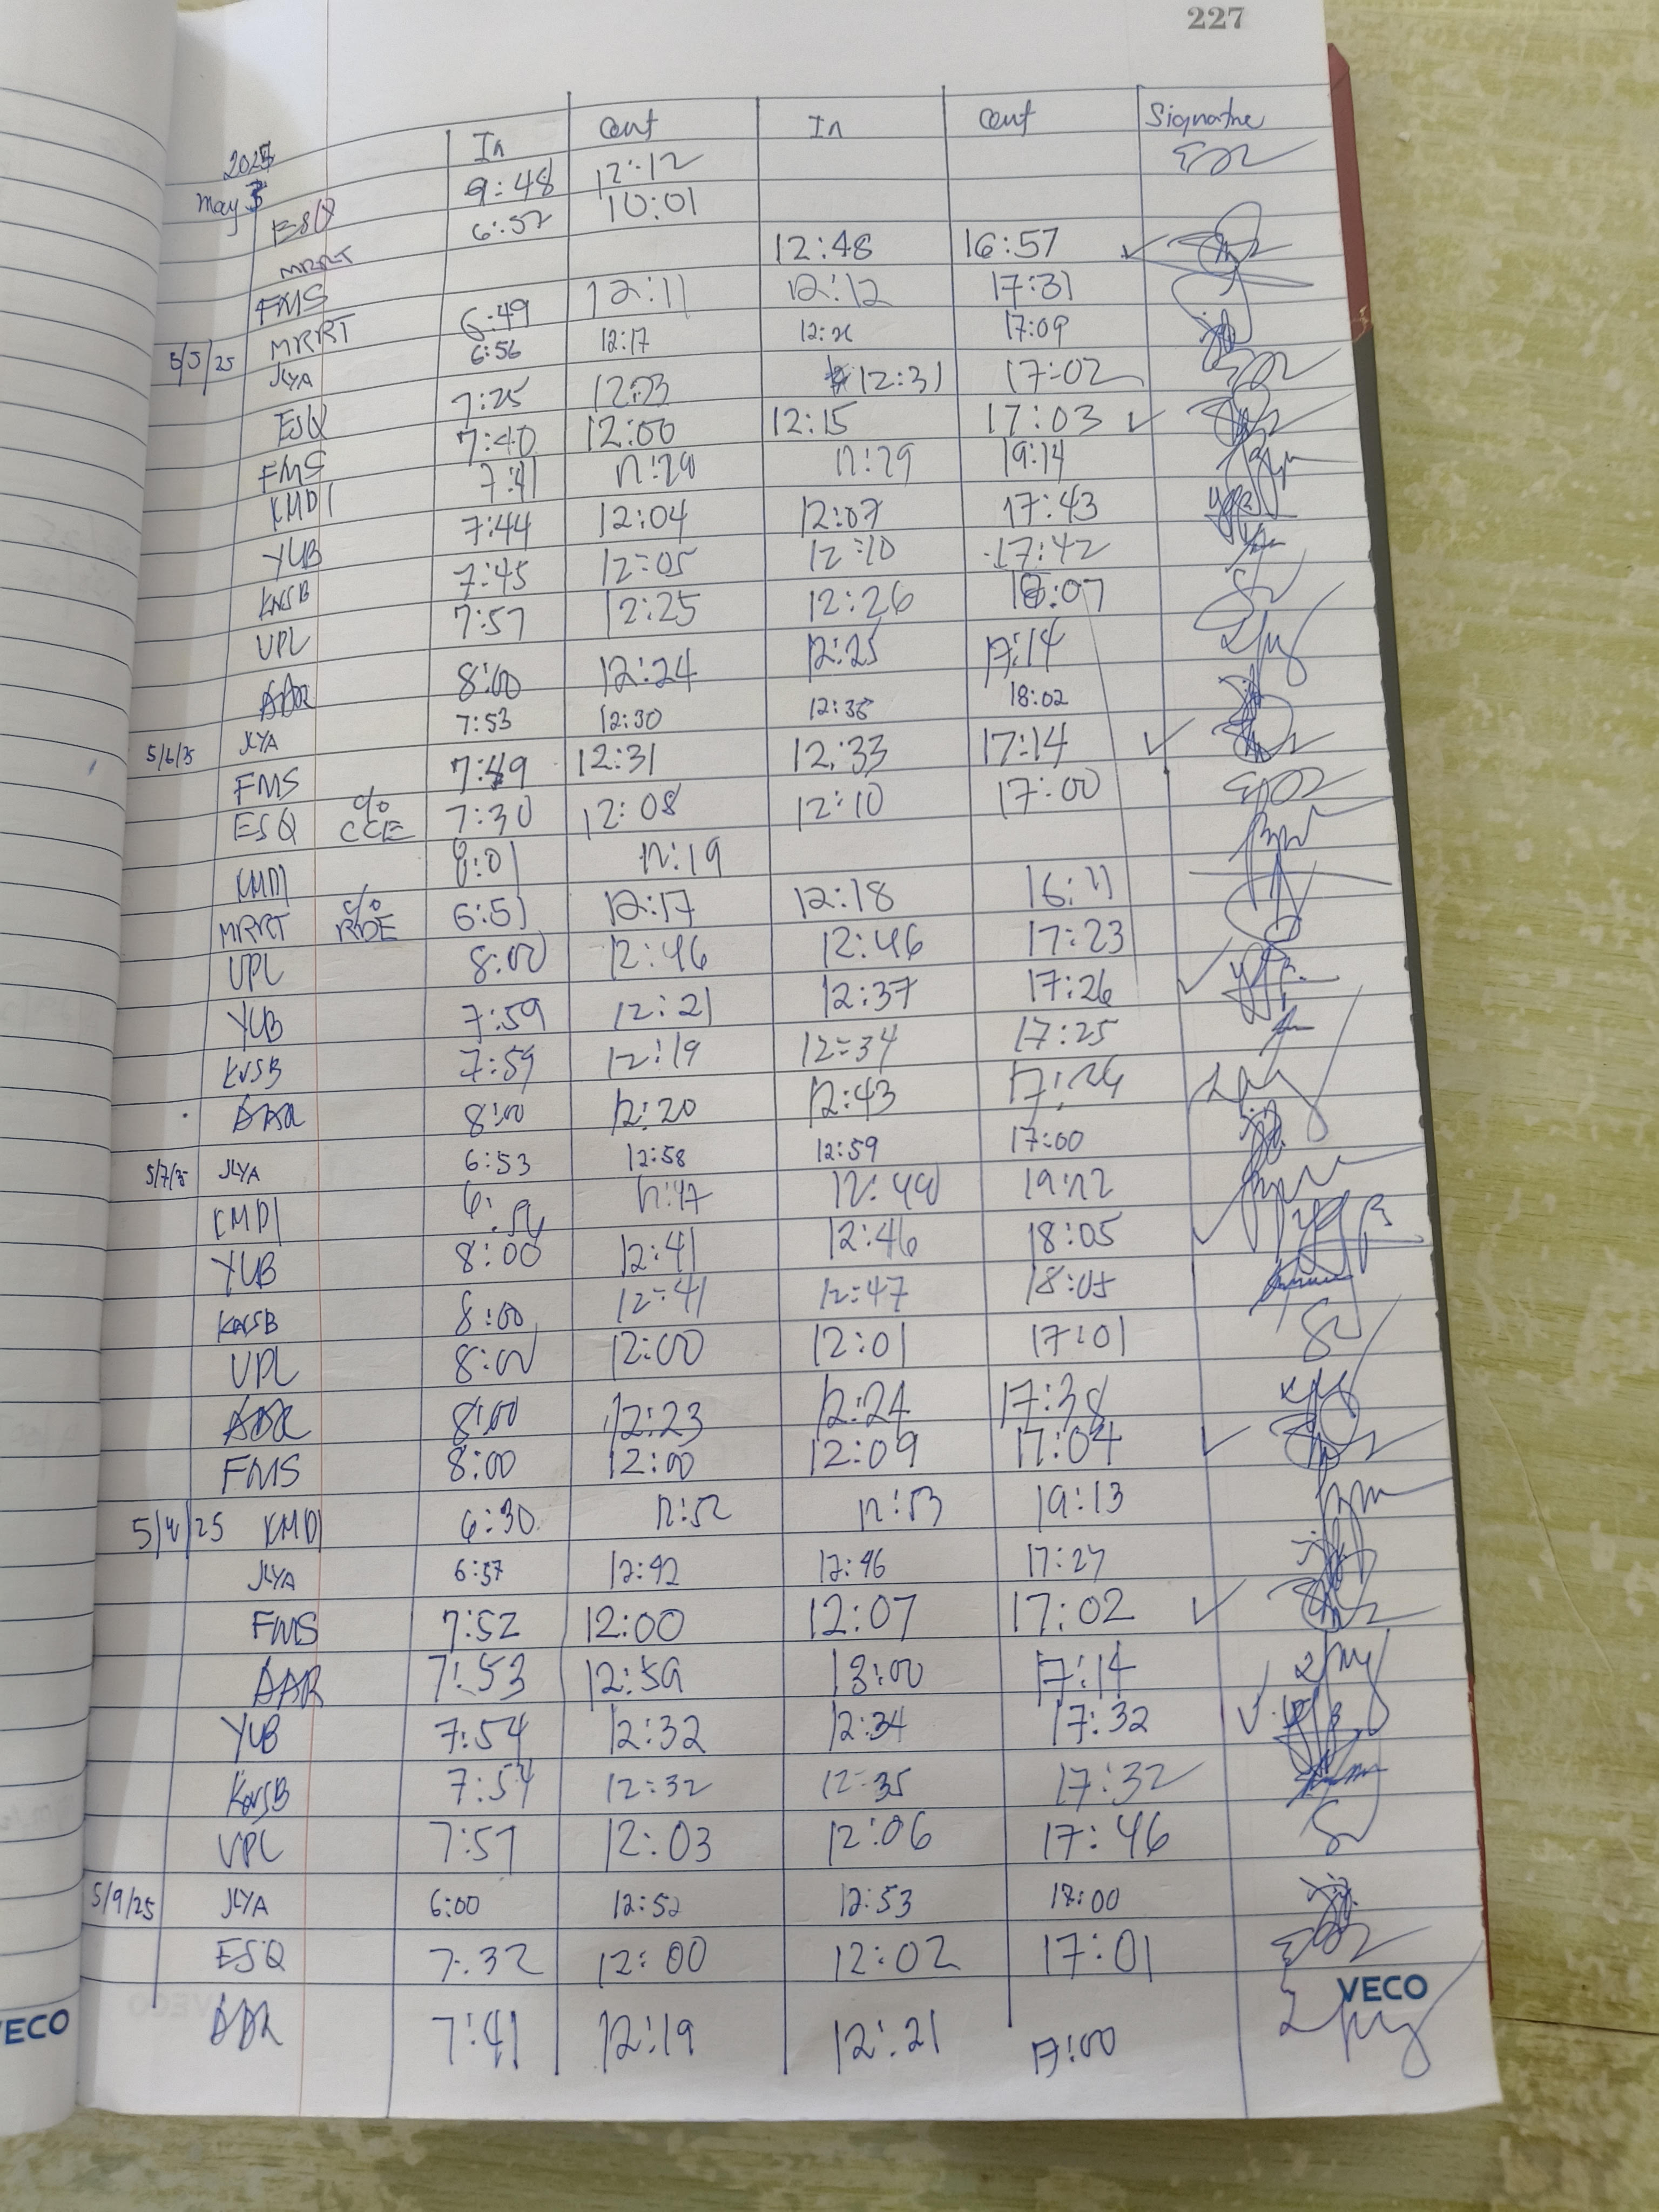 227
In out In out Signature
2025
May 3 ESQ 9:48 12:12
MRRT 6:52 10:01
FMS 12:48 16:57 ✓
5/5/25 MRRT 6:49 12:11 12:12 17:31
JLYA 6:56 12:17 17:09
ESQ 7:25 12:23 12:31 17:02
FMS 7:40 12:00 12:15 17:03 ✓
KMDI 7:41 12:29 12:29 19:14
YUB 7:44 12:04 12:07 17:43
KNSB 7:45 12:05 12:10 17:42
VPL 7:57 12:25 12:26 18:07
AAR 8:00 12:24 12:25 17:14
5/6/25 JLYA 7:53 12:30 12:38 18:02
FMS 7:49 12:31 12:33 17:14 ✓
ESQ c/o CCE 7:30 12:08 12:10 17:00
KMDI 8:01 12:19
MRRT c/o RDE 6:51 12:17 12:18 16:11
VPL 8:00 12:46 12:46 17:23
YUB 7:59 12:21 12:37 17:26 ✓
KNSB 7:59 12:19 12:34 17:25
AAR 8:00 12:20 12:43 17:26
5/7/25 JLYA 6:53 12:58 12:59 17:00
KMDI 12:47 12:49 19:12
YUB 8:00 12:41 12:46 18:05 ✓
KNSB 8:00 12:41 12:47 18:05
VPL 8:00 12:00 12:01 17:01
AAR 8:00 12:23 12:24 17:38
FMS 8:00 12:00 12:09 17:04 ✓
KMDI 6:30 12:52 12:53 19:13
JLYA 6:57 12:42 12:46 17:27
FMS 7:52 12:00 12:07 17:02 ✓
AAR 7:53 12:59 13:00 17:14
YUB 7:54 12:32 12:34 17:32 ✓
KNSB 7:54 12:32 12:35 17:32
VPL 7:57 12:03 12:06 17:46
5/9/25 JLYA 6:00 12:52 12:53 18:00
ESQ 7:32 12:00 12:02 17:01
AAR 7:41 12:19 12:21 17:00
VECO
VECO